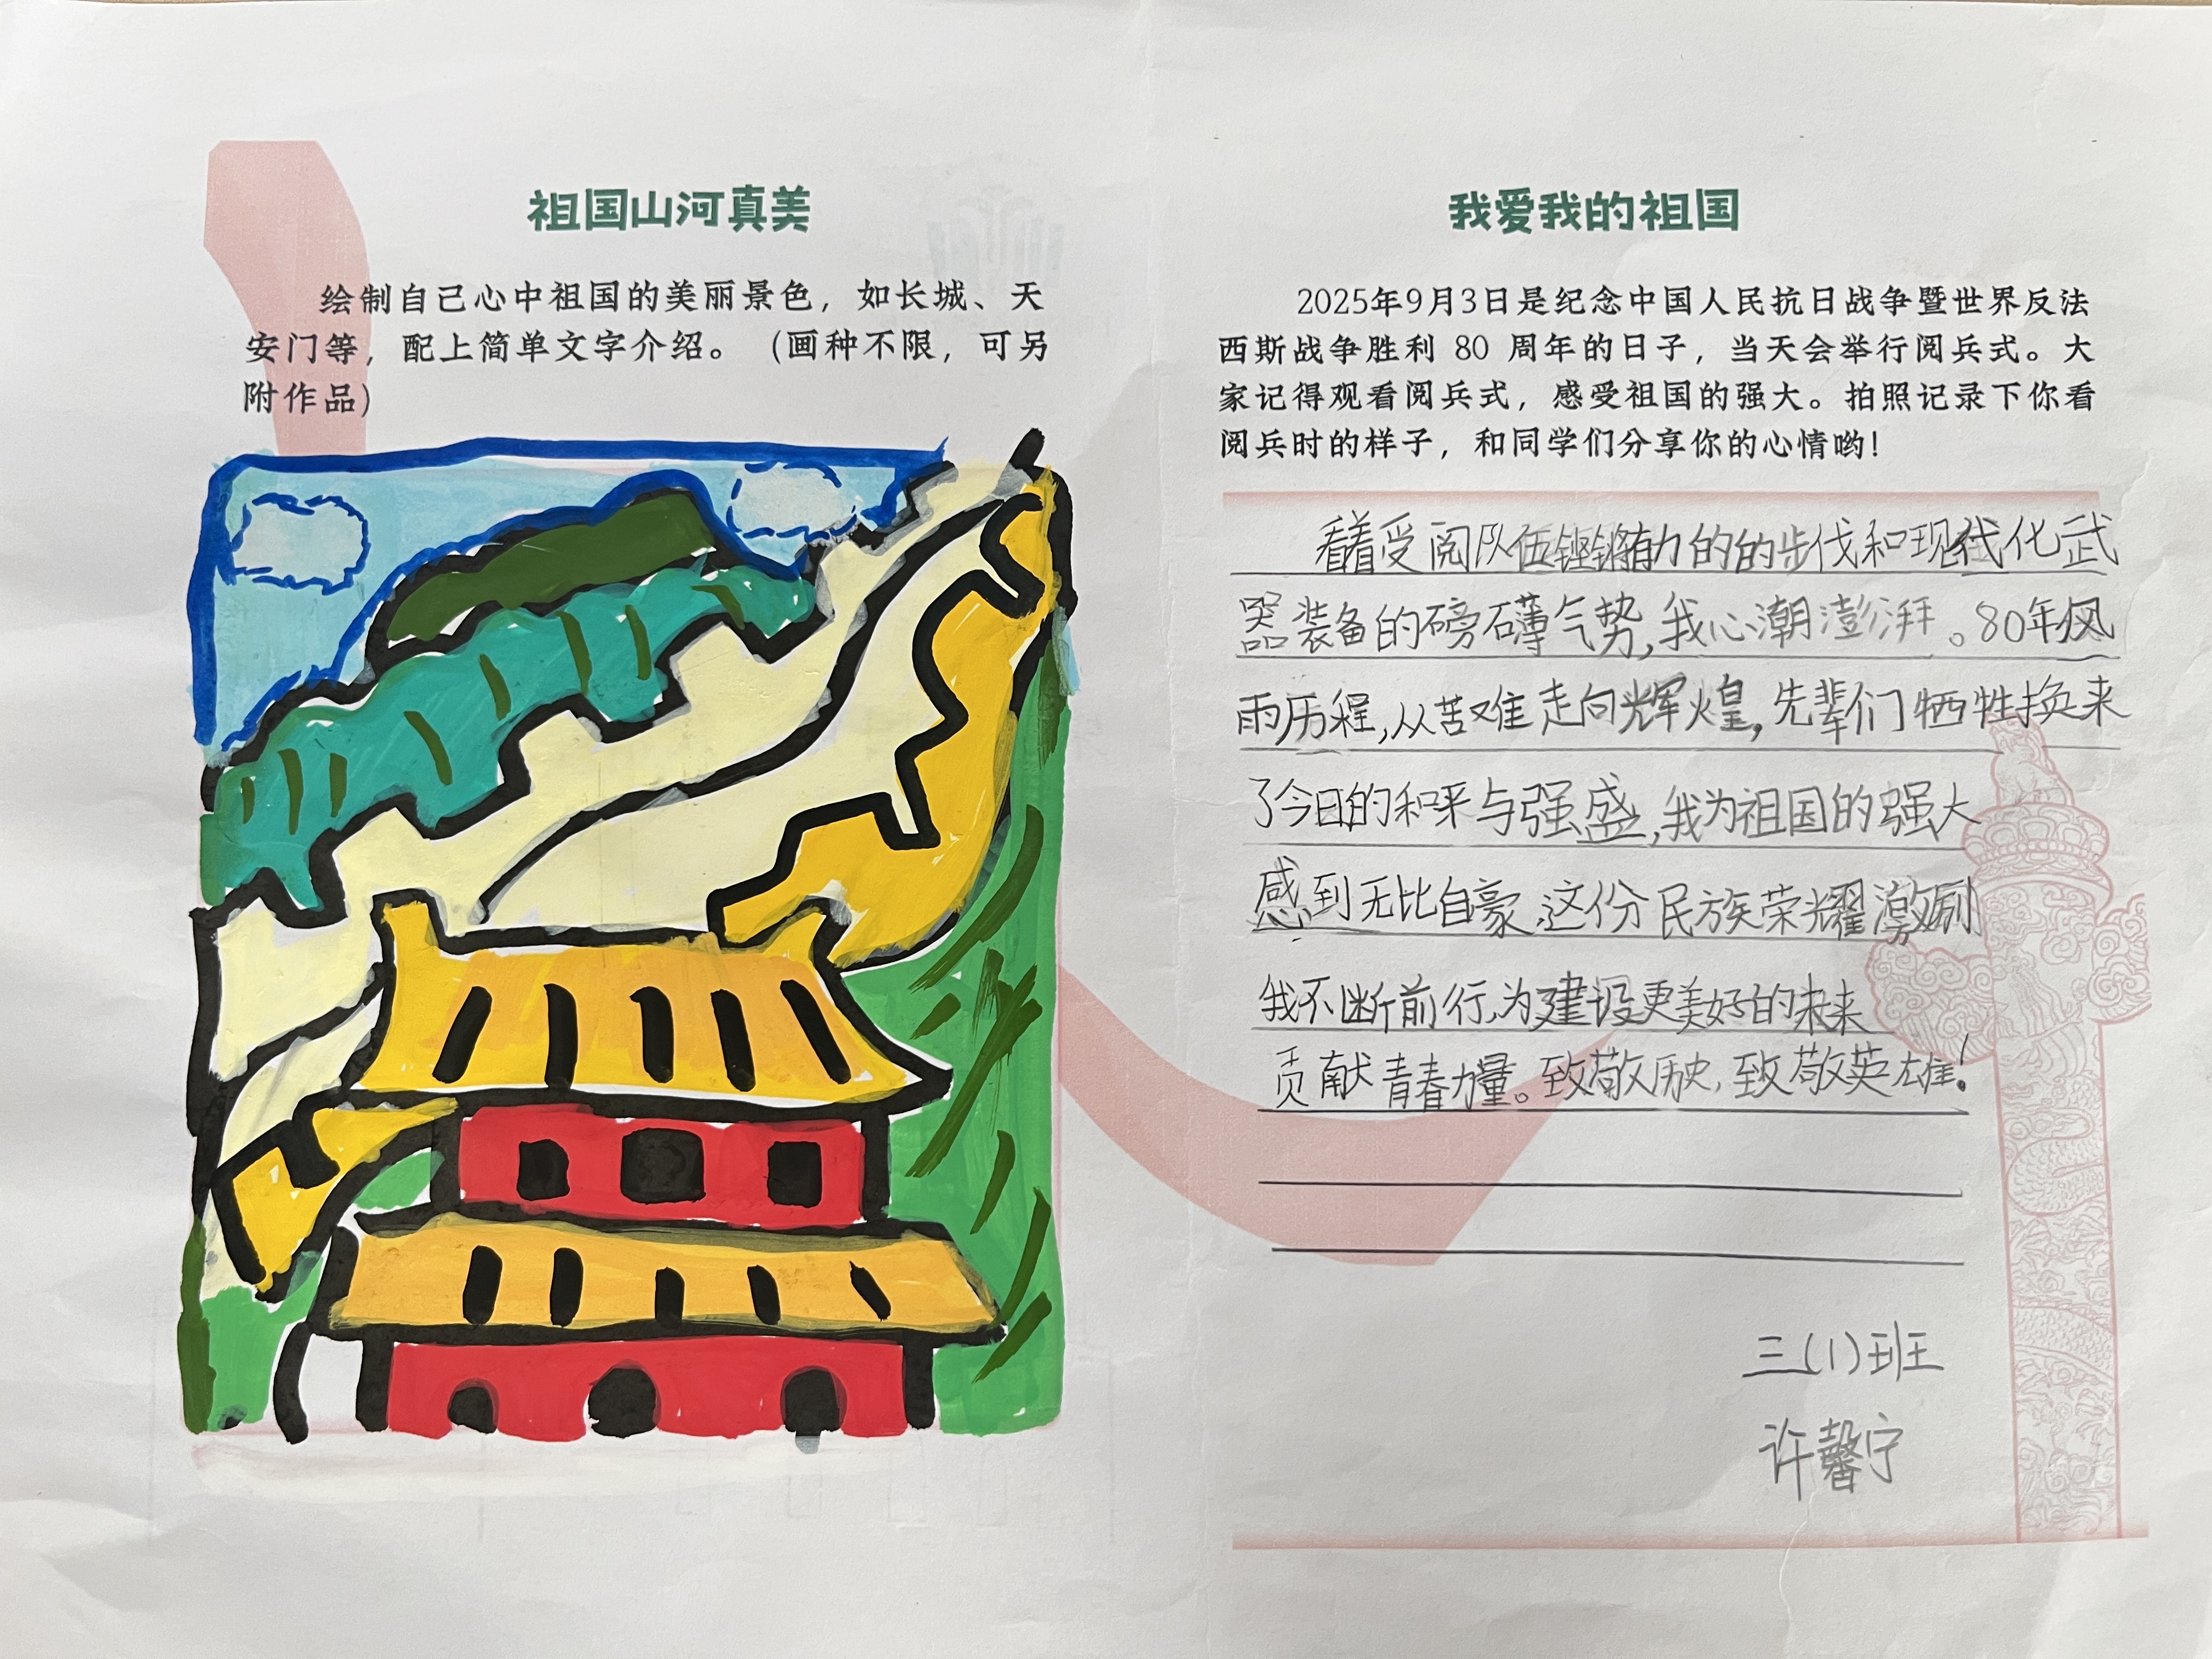 祖国山河真美
绘制自己心中祖国的美丽景色，如长城、天
安门等，配上简单文字介绍。（画种不限，可另
附作品）
我爱我的祖国
2025年9月3日是纪念中国人民抗日战争暨世界反法
西斯战争胜利 80 周年的日子，当天会举行阅兵式。大
家记得观看阅兵式，感受祖国的强大。拍照记录下你看
阅兵时的样子，和同学们分享你的心情哟！
看着受阅队伍铿锵有力的的步伐和现代化武
器装备的磅礴气势,我心潮澎湃。80年风
雨历程,从苦难走向辉煌,先辈们牺牲换来
了今日的和平与强盛,我为祖国的强大
感到无比自豪.这份民族荣耀激励
我不断前行,为建设更美好的未来
贡献青春力量。致敬历史,致敬英雄!
三(1)班
许馨宁